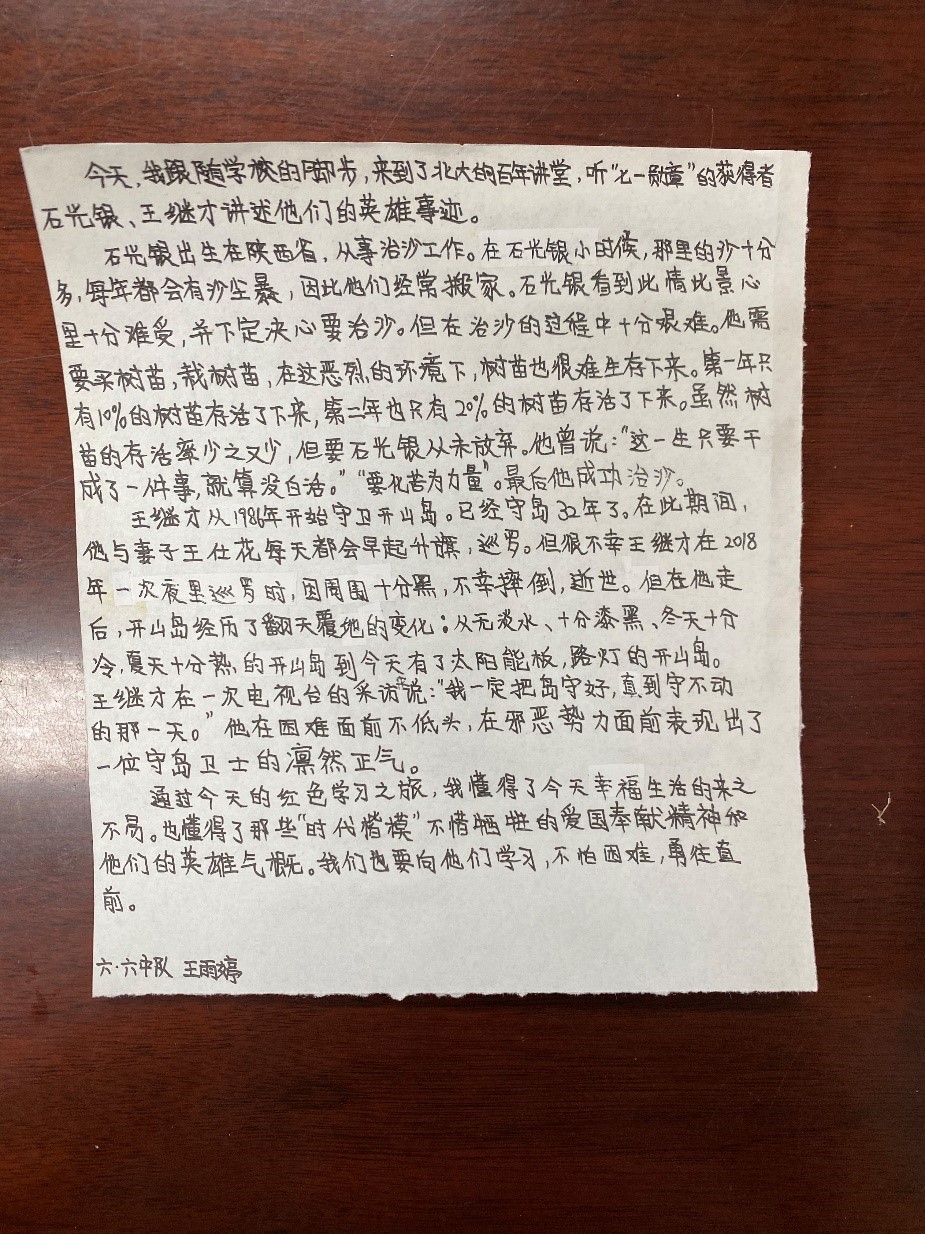 今天,我跟随学校的脚步,来到了北大的百年讲堂,听“七一勋章”的获得者
石光银、王继才讲述他们的英雄事迹。
石光银出生在陕西省,从事治沙工作。在石光银小时候,那里的沙十分
多,每年都会有沙尘暴,因此他们经常搬家。石光银看到此情此景心
里十分难受,并下定决心要治沙。但在治沙的过程中十分艰难。他需
要买树苗,栽树苗,在这恶烈的环境下,树苗也很难生存下来。第一年只
有10%的树苗存活了下来,第二年也只有20%的树苗存活了下来。虽然树
苗的存活率少之又少,但要石光银从未放弃。他曾说:“这一生只要干
成了一件事,就算没白活。”“要化苦为力量”。最后他成功治沙。
王继才从1986年开始守卫开山岛。已经守岛32年了。在此期间,
他与妻子王仕花每天都会早起升旗,巡罗。但很不幸王继才在2018
年一次夜里巡罗时,因周围十分黑,不幸摔倒,逝世。但在他走
后,开山岛经历了翻天覆地的变化:从无淡水、十分漆黑、冬天十分
冷,夏天十分热的开山岛到今天有了太阳能板,路灯的开山岛。
王继才在一次电视台的采访中说:“我一定把岛守好,直到守不动
的那一天。”他在困难面前不低头,在邪恶势力面前表现出了
一位守岛卫士的凛然正气。
通过今天的红色学习之旅,我懂得了今天幸福生活的来之
不易。也懂得了那些“时代楷模”不惜牺牲的爱国奉献精神和
他们的英雄气概。我们也要向他们学习,不怕困难,勇往直
前。
六·六中队 王雨婷